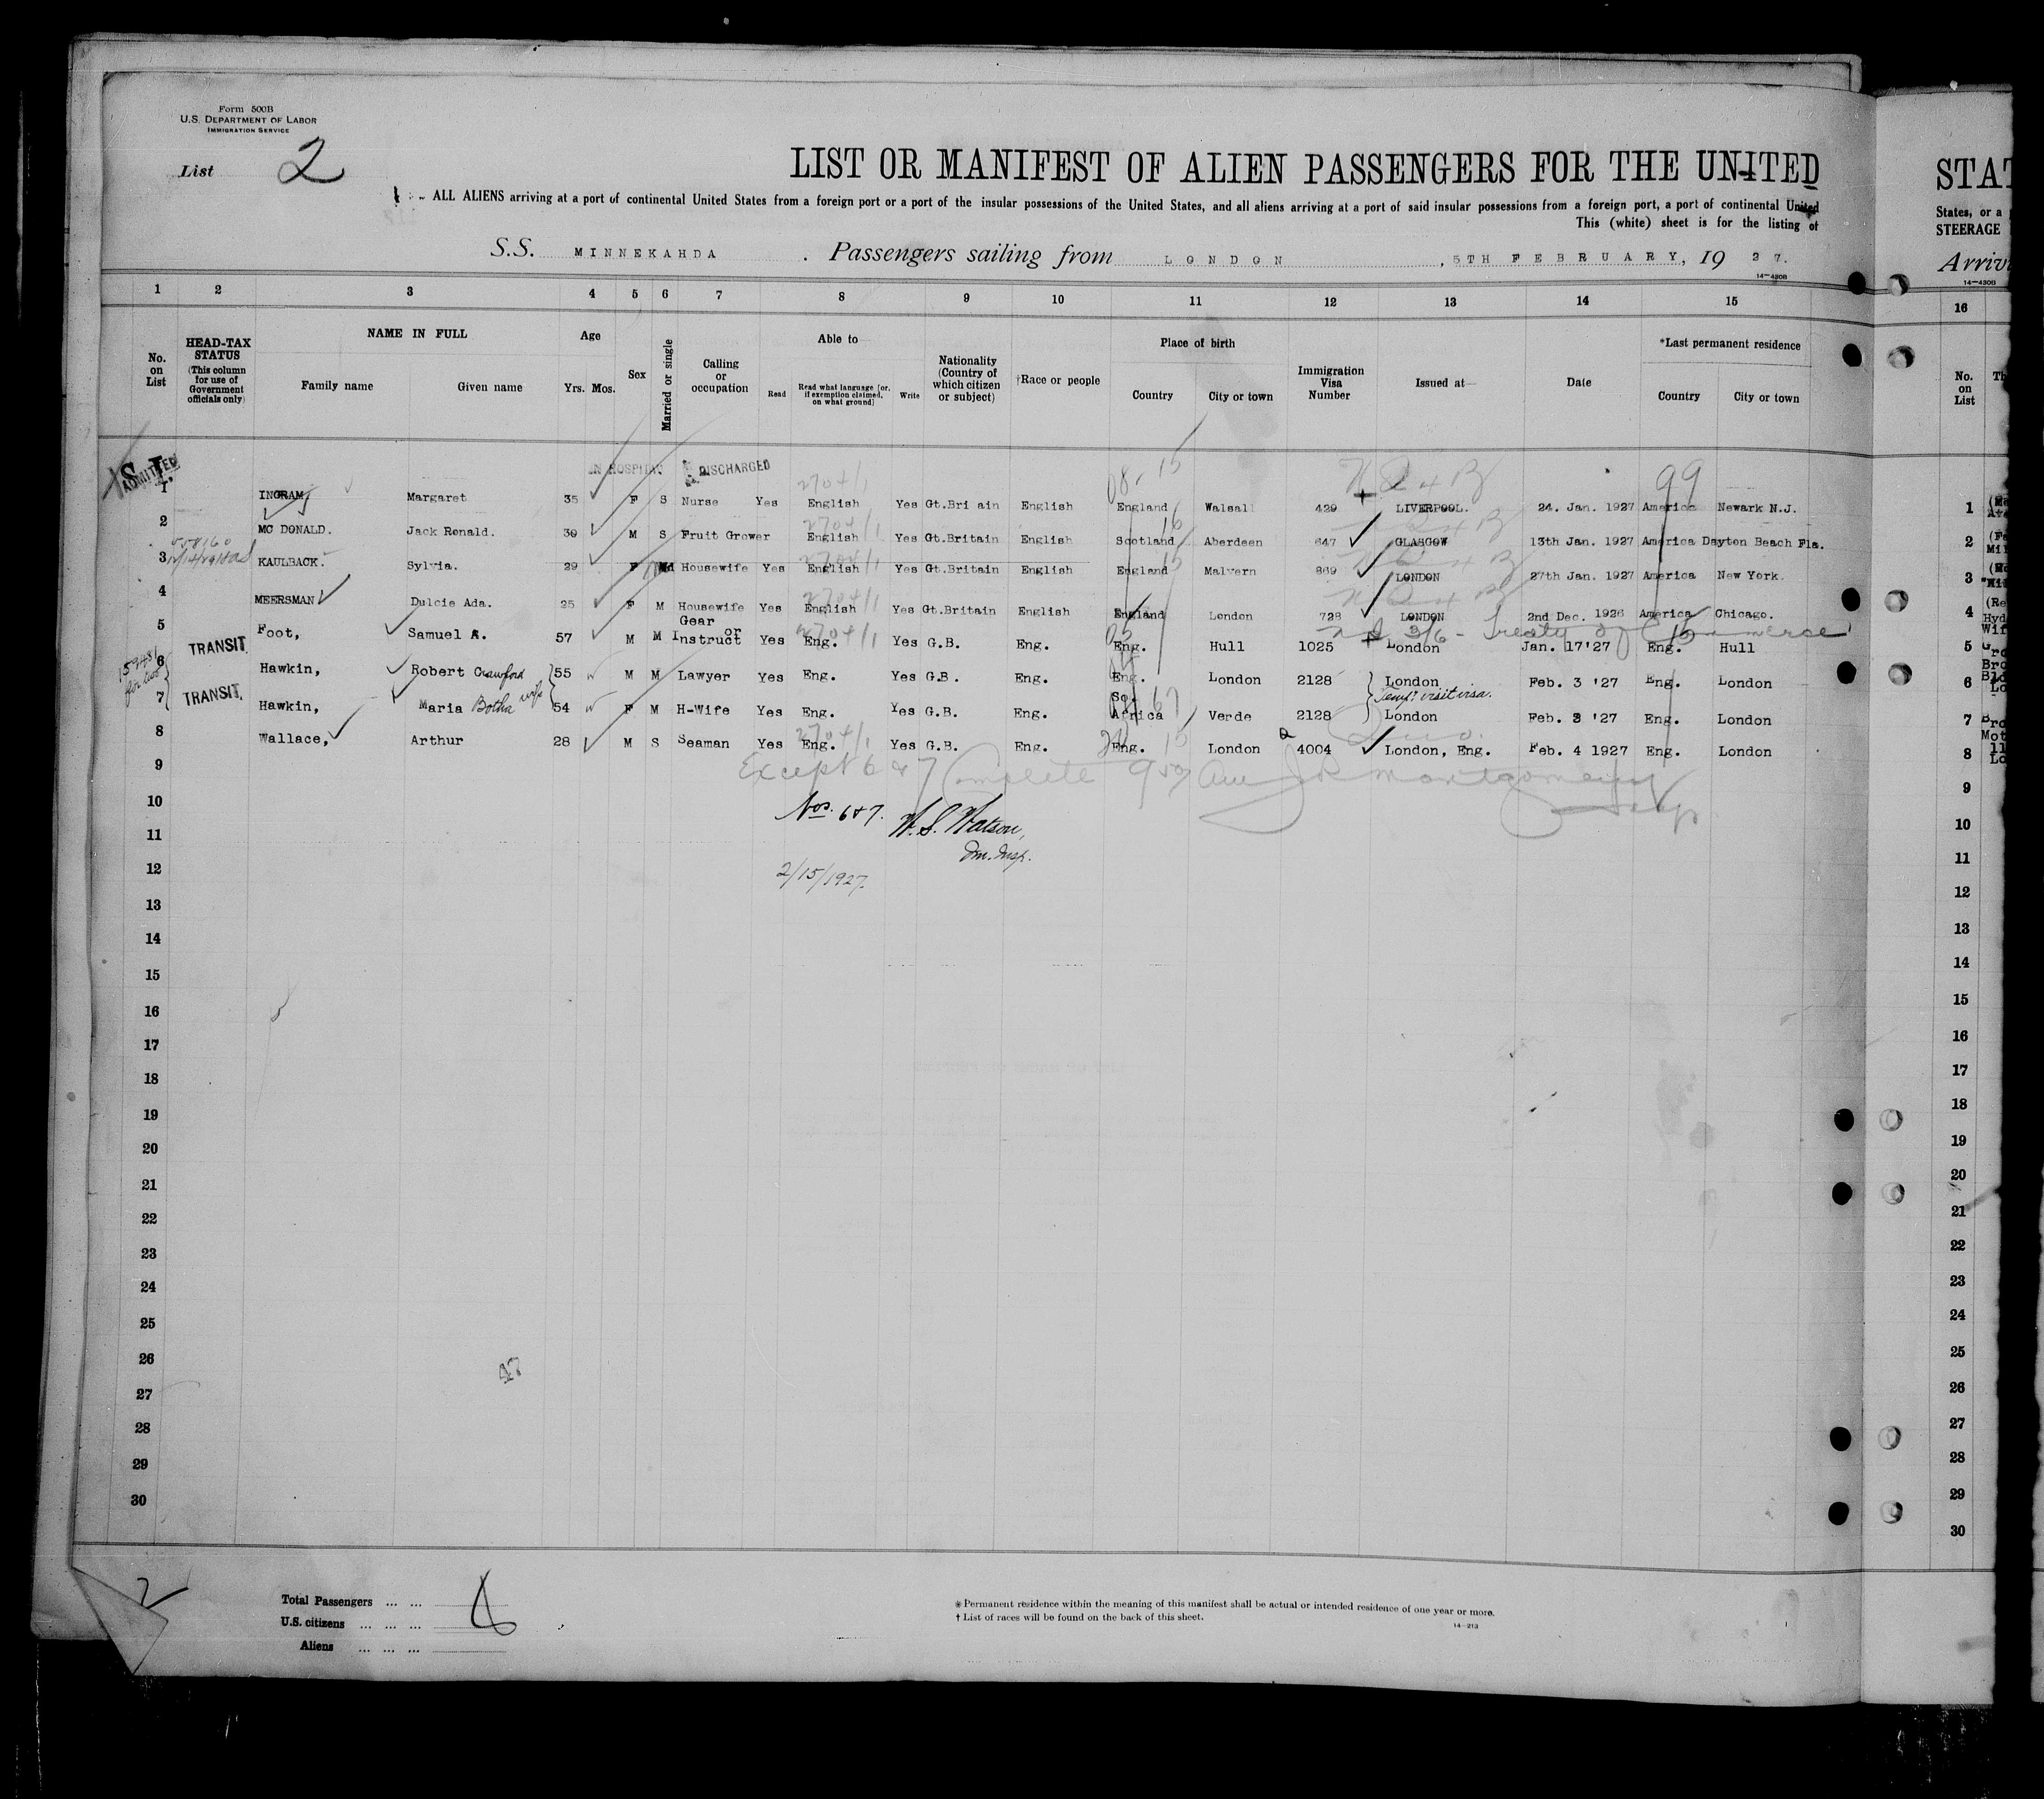 Form 500B
U.S. DEPARTMENT OF LABOR
IMMIGRATION SERVICE
List 2
LIST OR MANIFEST OF ALIEN PASSENGERS FOR THE UNITED
STAT
ALL ALIENS arriving at a port of continental United States from a foreign port or a port of the insular possessions of the United States, and all aliens arriving at a port of said insular possessions from a foreign port, a port of continental United
States, or a
This (white) sheet is for the listing of
STEERAGE
S.S. MINNEKAHDA . Passengers sailing from LONDON , 5TH FEBRUARY, 19 27.
Arriv
14-430B
14-430B
1 2 3 4 5 6 7 8 9 10 11 12 13 14 15
16
No. on List
HEAD-TAX STATUS (This column for use of Government officials only)
NAME IN FULL
Family name Given name
Age
Yrs. Mos.
Sex
Married or single
Calling or occupation
Able to
Read
Read what language [or, if exemption claimed, on what ground]
Write
Nationality (Country of which citizen or subject)
†Race or people
Place of birth
Country City or town
Immigration Visa Number
Issued at—
Date
*Last permanent residence
Country City or town
No. on List
Th
S.I.
ADMITTED
IN HOSPITAL DISCHARGED
2704/1 99
1 INGRAM Margaret 35 F S Nurse Yes English Yes Gt.Bri ain English England Walsall 429 LIVERPOOL. 24. Jan. 1927 America Newark N.J.
2 MC DONALD. Jack Ronald. 30 M S Fruit Grower English Yes Gt.Britain English Scotland Aberdeen 647 GLASGOW 13th Jan. 1927 America Dayton Beach Fla.
3 KAULBACK. Sylvia. 29 F Md Housewife Yes English Yes Gt.Britain English England Malvern 869 LONDON 27th Jan. 1927 America New York.
4 MEERSMAN Dulcie Ada. 25 F M Housewife Yes English Yes Gt.Britain English England London 728 LONDON 2nd Dec. 1926 America Chicago.
3/6 - Treaty of Commerce
5 Foot, Samuel A. 57 M M Gear Instruct or Yes Eng. Yes G.B. Eng. Eng. Hull 1025 London Jan. 17'27 Eng. Hull
6 TRANSIT Hawkin, Robert Crawford 55 M M Lawyer Yes Eng. Yes G.B. Eng. Eng. London 2128 London Feb. 3 '27 Eng. London
Temp. visit visa.
7 TRANSIT. Hawkin, Maria Botha wife 54 F M H-Wife Yes Eng. Yes G.B. Eng. So. Africa Verde 2128 London Feb. 3 '27 Eng. London
8 Wallace, Arthur 28 M S Seaman Yes Eng. Yes G.B. Eng. Eng. London 4004 London, Eng. Feb. 4 1927 Eng. London
Except 6 & 7 Complete Montgomery
9
10 Nos. 6&7. W. S. Watson,
11 Im. Insp.
12 2/15/1927.
13
14
15
16
17
18
19
20
21
22
23
24
25
26
27
28
29
30
1
2
3
4
5
6
7
8
9
10
11
12
13
14
15
16
17
18
19
20
21
22
23
24
25
26
27
28
29
30
Total Passengers ... ...
U.S. citizens ... ... ...
Aliens ... ... ...
* Permanent residence within the meaning of this manifest shall be actual or intended residence of one year or more.
† List of races will be found on the back of this sheet.
14-213